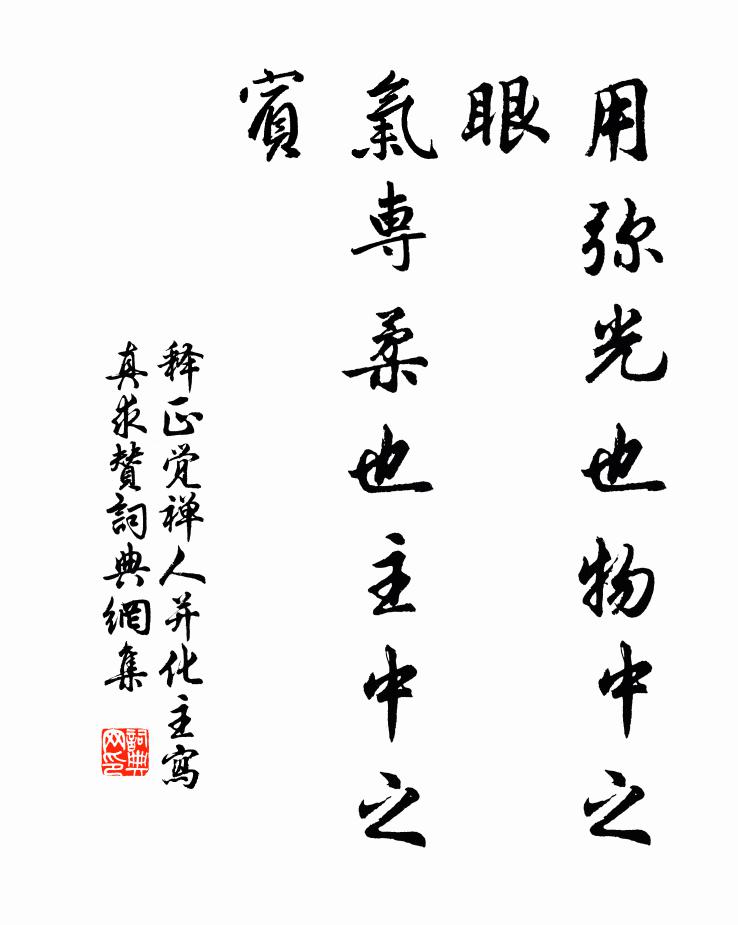 用弥光也物中之
眼
氣専柔也主中之
賓
释正觉禅人并化主寫
真求賛詞典網集
詞典
网印